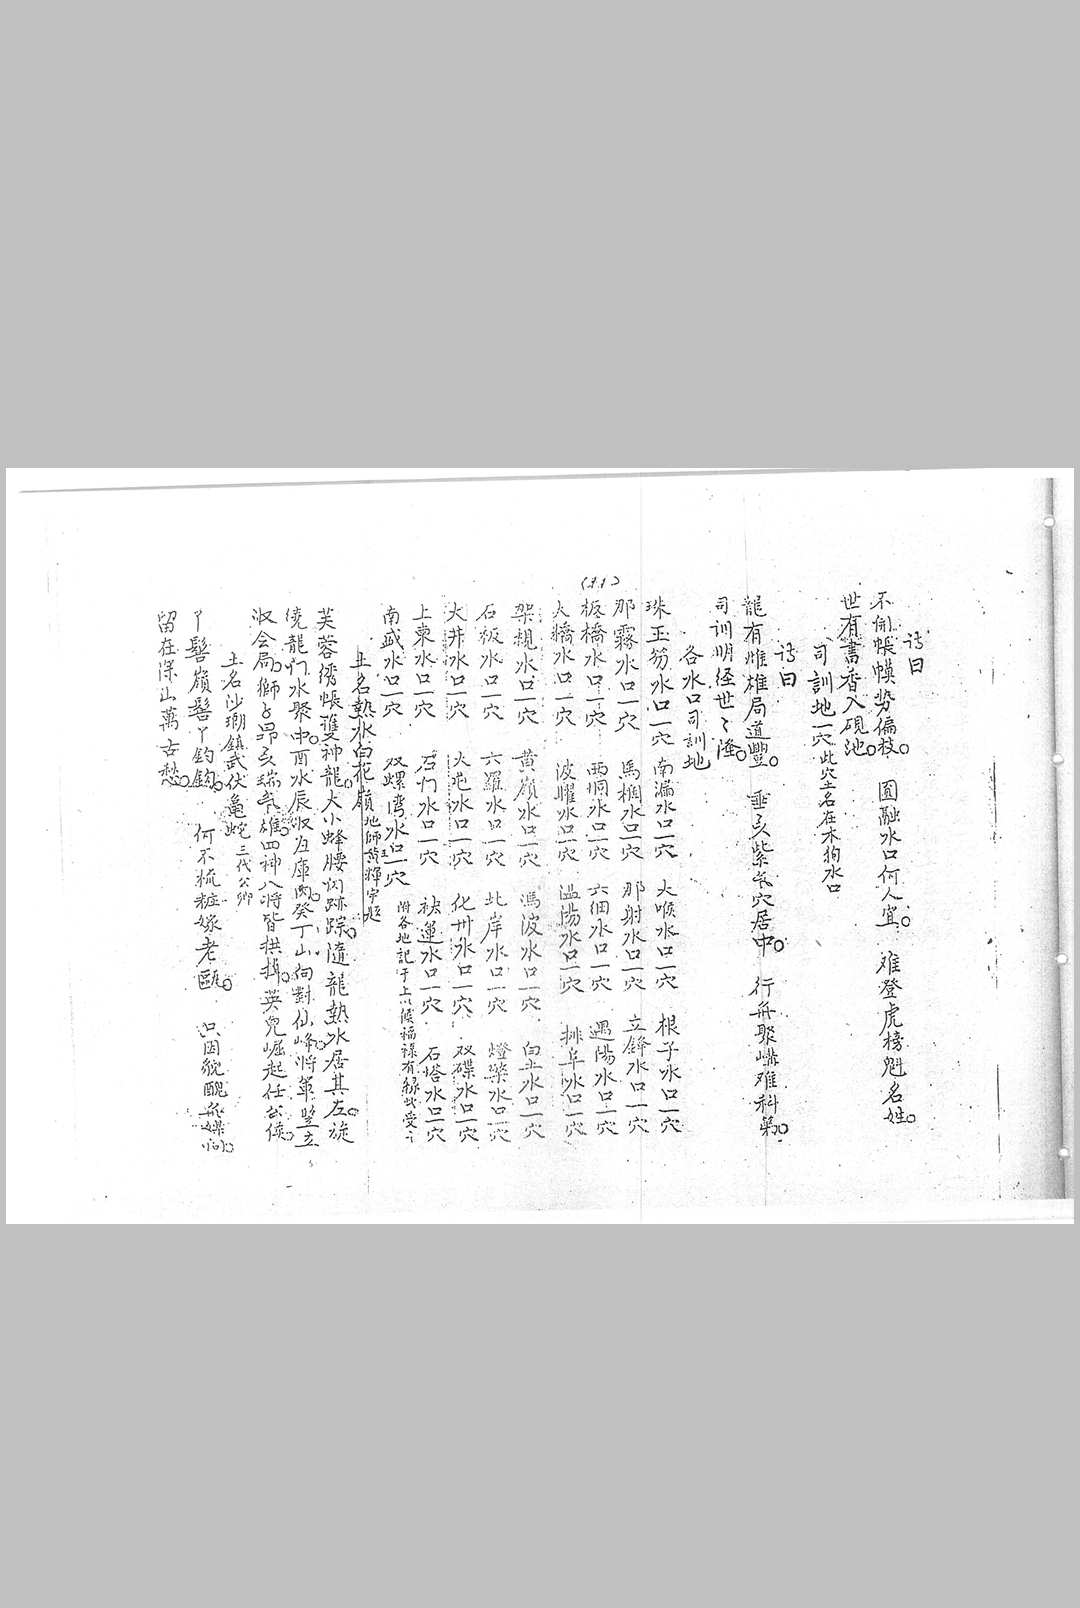 詩曰
不開帳幙势偏枝。 圓融水口何人宜。 难登虎榜魁名姓。
世有書香入硯池。
司訓地一穴 此穴土名在木狗水口
詩曰
龍有雌雄局道豐。 垂頭紫气穴居中。 行舟聚講难科第。
司训明经世〻隆。
各水口司訓地
珠玉笏水口一穴 南滿水口一穴 大喉水口一穴 根子水口一穴
那霧水口一穴 馬榈水口一穴 那射水口一穴 立鋒水口一穴
(11)
板橋水口一穴 西垌水口一穴 六個水口一穴 遇陽水口一穴
大橋水口一穴 波耀水口一穴 温陽水口一穴 排阜水口一穴
架枧水口一穴 黄嶺水口一穴 馮波水口一穴 白土水口一穴
石板水口一穴 六羅水口一穴 北岸水口一穴 燈樂水口一穴
大井水口一穴 大岜水口一穴 化州水口一穴 双碟水口一穴
上東水口一穴 石门水口一穴 袂運水口一穴 石塔水口一穴
南盛水口一穴 双螺湾水口一穴 附各地記于上以候福禄有缘者受之
土名熱水白花嶺 地師黄輝宇題
芙蓉绣帳雙神龍。大小蜂腰闪跡踪。隨龍熱水居其左。旋
绕龍门水聚中。酉水辰收左庫内。癸丁山向對仙峰。将軍竪立
收会局。獅子昂頭瑞气雄。四神八将皆拱揖。英児崛起任公侯。
土名沙瑚鎮武伏龜蛇 三代公卿
丫髻嶺髻丫鈞鈞。 何不梳粧嫁老區。 只因貌醜無媒问。
留在深山萬古愁。